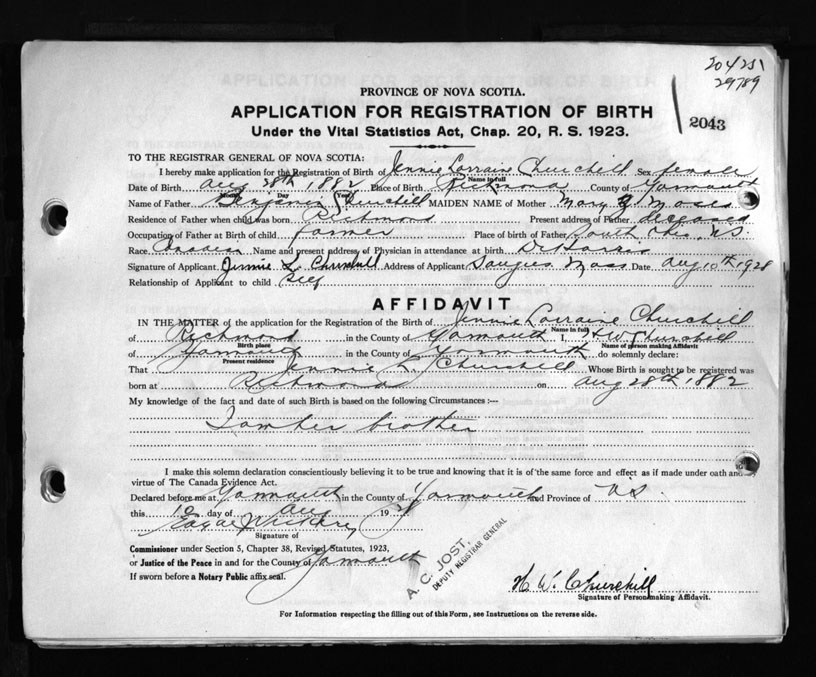 20425
29789
PROVINCE OF NOVA SCOTIA.
APPLICATION FOR REGISTRATION OF BIRTH
2043
Under the Vital Statistics Act, Chap. 20, R. S. 1923.
TO THE REGISTRAR GENERAL OF NOVA SCOTIA:
I hereby make application for the Registration of Birth of Jennie Lorrain Churchill Sex female
Name in full
Date of Birth Aug 28th 1882 Place of Birth Richmond County of Yarmouth
Month Day Year
Name of Father Benjamin Churchill MAIDEN NAME of Mother Mary Moses
Residence of Father when child was born Richmond Present address of Father deceased
Occupation of Father at Birth of child farmer Place of birth of Father South Ohio, N.S.
Race Name and present address of Physician in attendance at birth Dr Harris
Signature of Applicant Jennie L. Churchill Address of Applicant Saugus Mass Date Aug 10th 1928
Relationship of Applicant to child Self
AFFIDAVIT
IN THE MATTER of the application for the Registration of the Birth of Jennie Lorraine Churchill
Name in full
of Richmond in the County of Yarmouth I, H. W. Churchill
Birth place Name of person making Affidavit
of Yarmouth in the County of Yarmouth do solemnly declare:
Present residence
That Jennie L. Churchill Whose Birth is sought to be registered was
born at Richmond on Aug 28th 1882
My knowledge of the fact and date of such Birth is based on the following Circumstances :—
I am her brother
I make this solemn declaration conscientiously believing it to be true and knowing that it is of the same force and effect as if made under oath and by
virtue of The Canada Evidence Act.
Declared before me at Yarmouth in the County of Yarmouth and Province of N.S.
this day of Aug 19
Signature of
Commissioner under Section 5, Chapter 38, Revised Statutes, 1923,
or Justice of the Peace in and for the County of Yarmouth
If sworn before a Notary Public affix seal.
A. C. JOST,
DEPUTY REGISTRAR GENERAL
H. W. Churchill
Signature of Person making Affidavit.
For Information respecting the filling out of this Form, see Instructions on the reverse side.